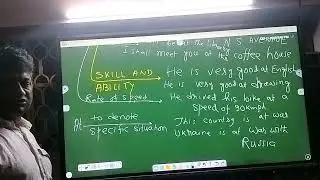 I shall meet you at the coffee house
SKILL AND ABILITY
He is very good at English
He is very good at drawing
Rate of Speed
He drived his bike at a
speed of 90kmph
At
to denote
specific situation
This country is at war
Ukraine is at war with
RUSSIA